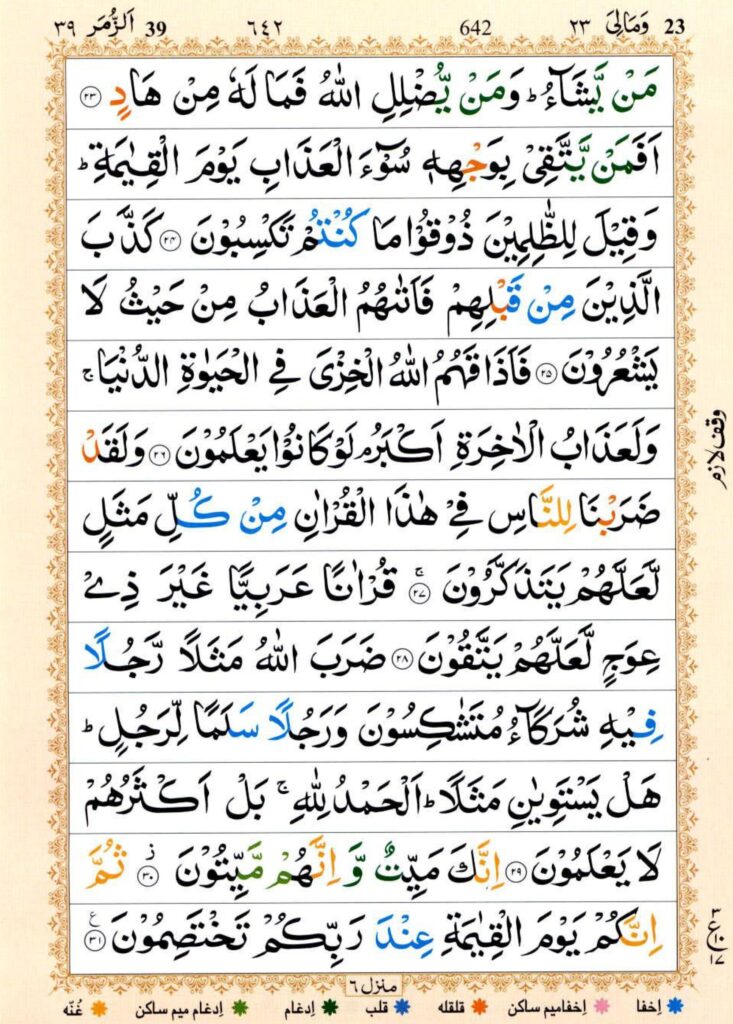 23 وَمَالِیَ ٢٣ 642 ٦٤٢ 39 اَلزُّمَر ٣٩
مَنْ يَّشَآءُ ؕ وَمَنْ يُّضْلِلِ اللّٰهُ فَمَا لَهٗ مِنْ هَادٍ ﴿۲۳﴾
اَفَمَنْ يَّتَّقِىْ بِوَجْهِهٖ سُوْٓءَ الْعَذَابِ يَوْمَ الْقِيٰمَةِ ؕ
وَقِيْلَ لِلظّٰلِمِيْنَ ذُوْقُوْا مَا كُنْتُمْ تَكْسِبُوْنَ ﴿۲۴﴾ كَذَّبَ
الَّذِيْنَ مِنْ قَبْلِهِمْ فَاَتٰٮهُمُ الْعَذَابُ مِنْ حَيْثُ لَا
يَشْعُرُوْنَ ﴿۲۵﴾ فَاَذَاقَهُمُ اللّٰهُ الْخِزْىَ فِى الْحَيٰوةِ الدُّنْيَا ۚ
وَلَعَذَابُ الْاٰخِرَةِ اَكْبَرُ ۘ لَوْ كَانُوْا يَعْلَمُوْنَ ﴿۲۶﴾ وَلَقَدْ
وقف لازم
ضَرَبْنَا لِلنَّاسِ فِىْ هٰذَا الْقُرْاٰنِ مِنْ كُلِّ مَثَلٍ
لَّعَلَّهُمْ يَتَذَكَّرُوْنَ ۚ ﴿۲۷﴾ قُرْاٰنًا عَرَبِيًّا غَيْرَ ذِىْ
عِوَجٍ لَّعَلَّهُمْ يَتَّقُوْنَ ﴿۲۸﴾ ضَرَبَ اللّٰهُ مَثَلًا رَّجُلًا
فِيْهِ شُرَكَآءُ مُتَشٰكِسُوْنَ وَرَجُلًا سَلَمًا لِّرَجُلٍ ؕ
هَلْ يَسْتَوِيٰنِ مَثَلًا ؕ اَلْحَمْدُ لِلّٰهِ ۚ بَلْ اَكْثَرُهُمْ
لَا يَعْلَمُوْنَ ﴿۲۹﴾ اِنَّكَ مَيِّتٌ وَّاِنَّهُمْ مَّيِّتُوْنَ ﴿۳۰﴾ ز ثُمَّ
اِنَّكُمْ يَوْمَ الْقِيٰمَةِ عِنْدَ رَبِّكُمْ تَخْتَصِمُوْنَ ﴿۳۱﴾ ع
٣ ع ١٠ ١٧
منزل ٦
اِخفا اِخفامیم ساکن قلقله قلب اِدغام اِدغام میم ساکن غُنّه